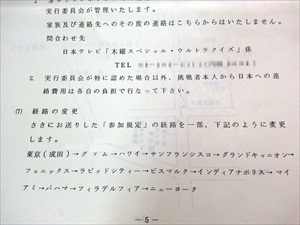 実行委員会が管理いたします。
家族及び連絡先へのその度の連絡はこちらからはいたしません。
問合わせ先
日本テレビ「木曜スペシャル・ウルトラクイズ」係
TEL
2. 実行委員会が特に認めた場合以外、挑戦者本人から日本への連
絡費用は各自の負担で行なって下さい。
(7) 経路の変更
さきにお送りした「参加規定」の経路を一部、下記のように変更
します。
東京(成田)→グァム→ハワイ→サンフランシスコ→グランドキャニオン→
フェニックス→ラピッドシティー→ビスマルク→インディアナポリス→マイ
アミ→バハマ→フィラデルフィア→ニューヨーク
－5－